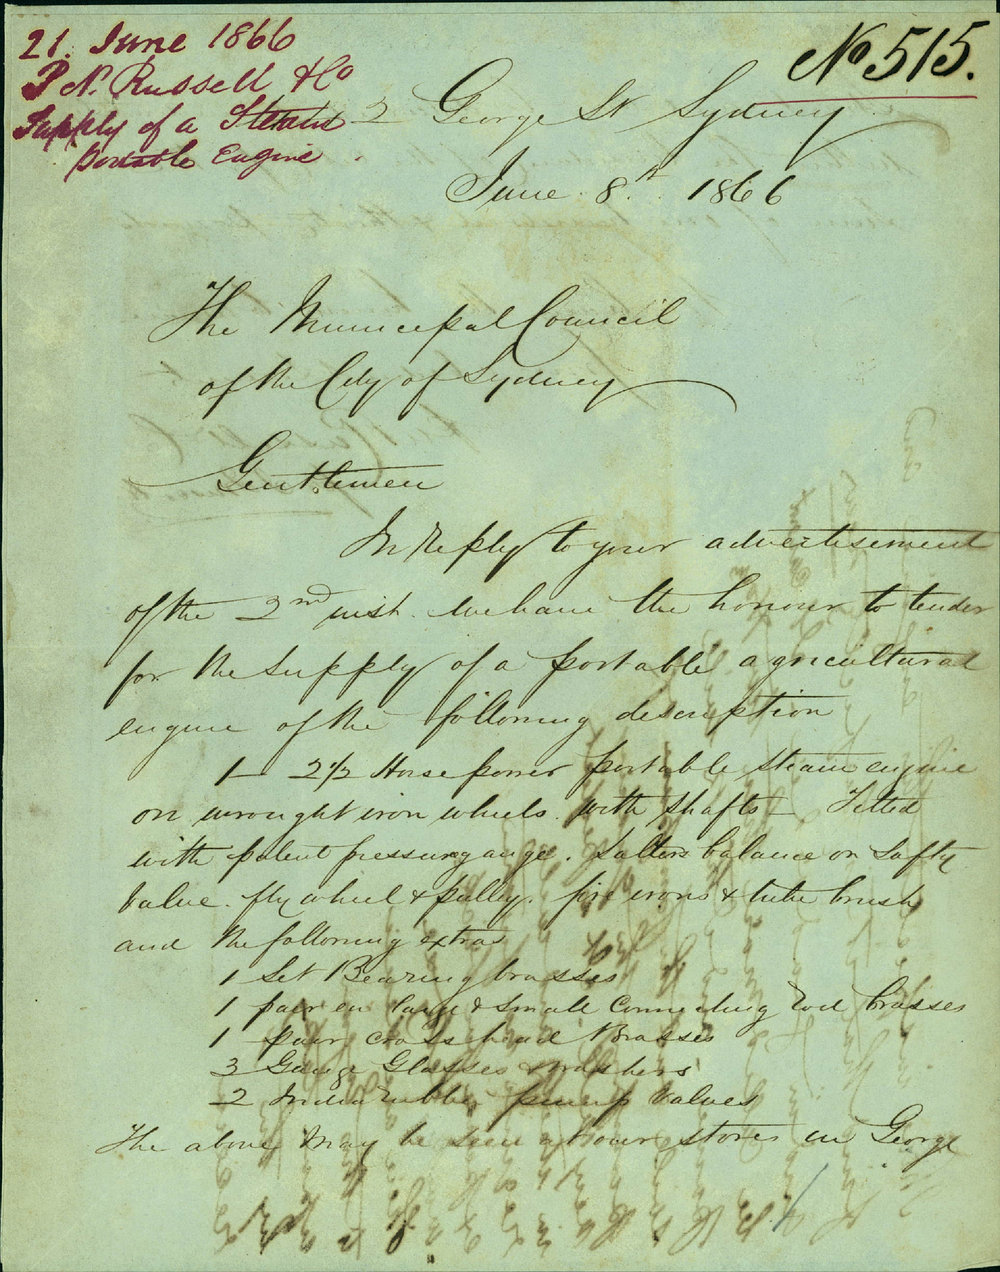 21. June 1866
P N. Russell & Co
Supply of a Steam
portable Engine
No 515.
George St Sydney
June 8th 1866
The Municipal Council
of the City of Sydney
Gentlemen
In reply to your advertisement
of the 2nd inst. we have the honour to tender
for the supply of a portable agricultural
engine of the following description
1 – 2 1/2 Horse power portable steam engine
on wrought iron wheels. with shafts – Fitted
with patent pressure gauge. Salters balance on Safty
Valve. fly wheel & pulley. fire irons & tube brush
and the following extras
1 Set Bearing brasses
1 pair ea large & small Connecting rod brasses
1 pair cross head Brasses
3 Gauge Glasses & washers
2 India rubber pump valves
The above may be seen at our stores in George